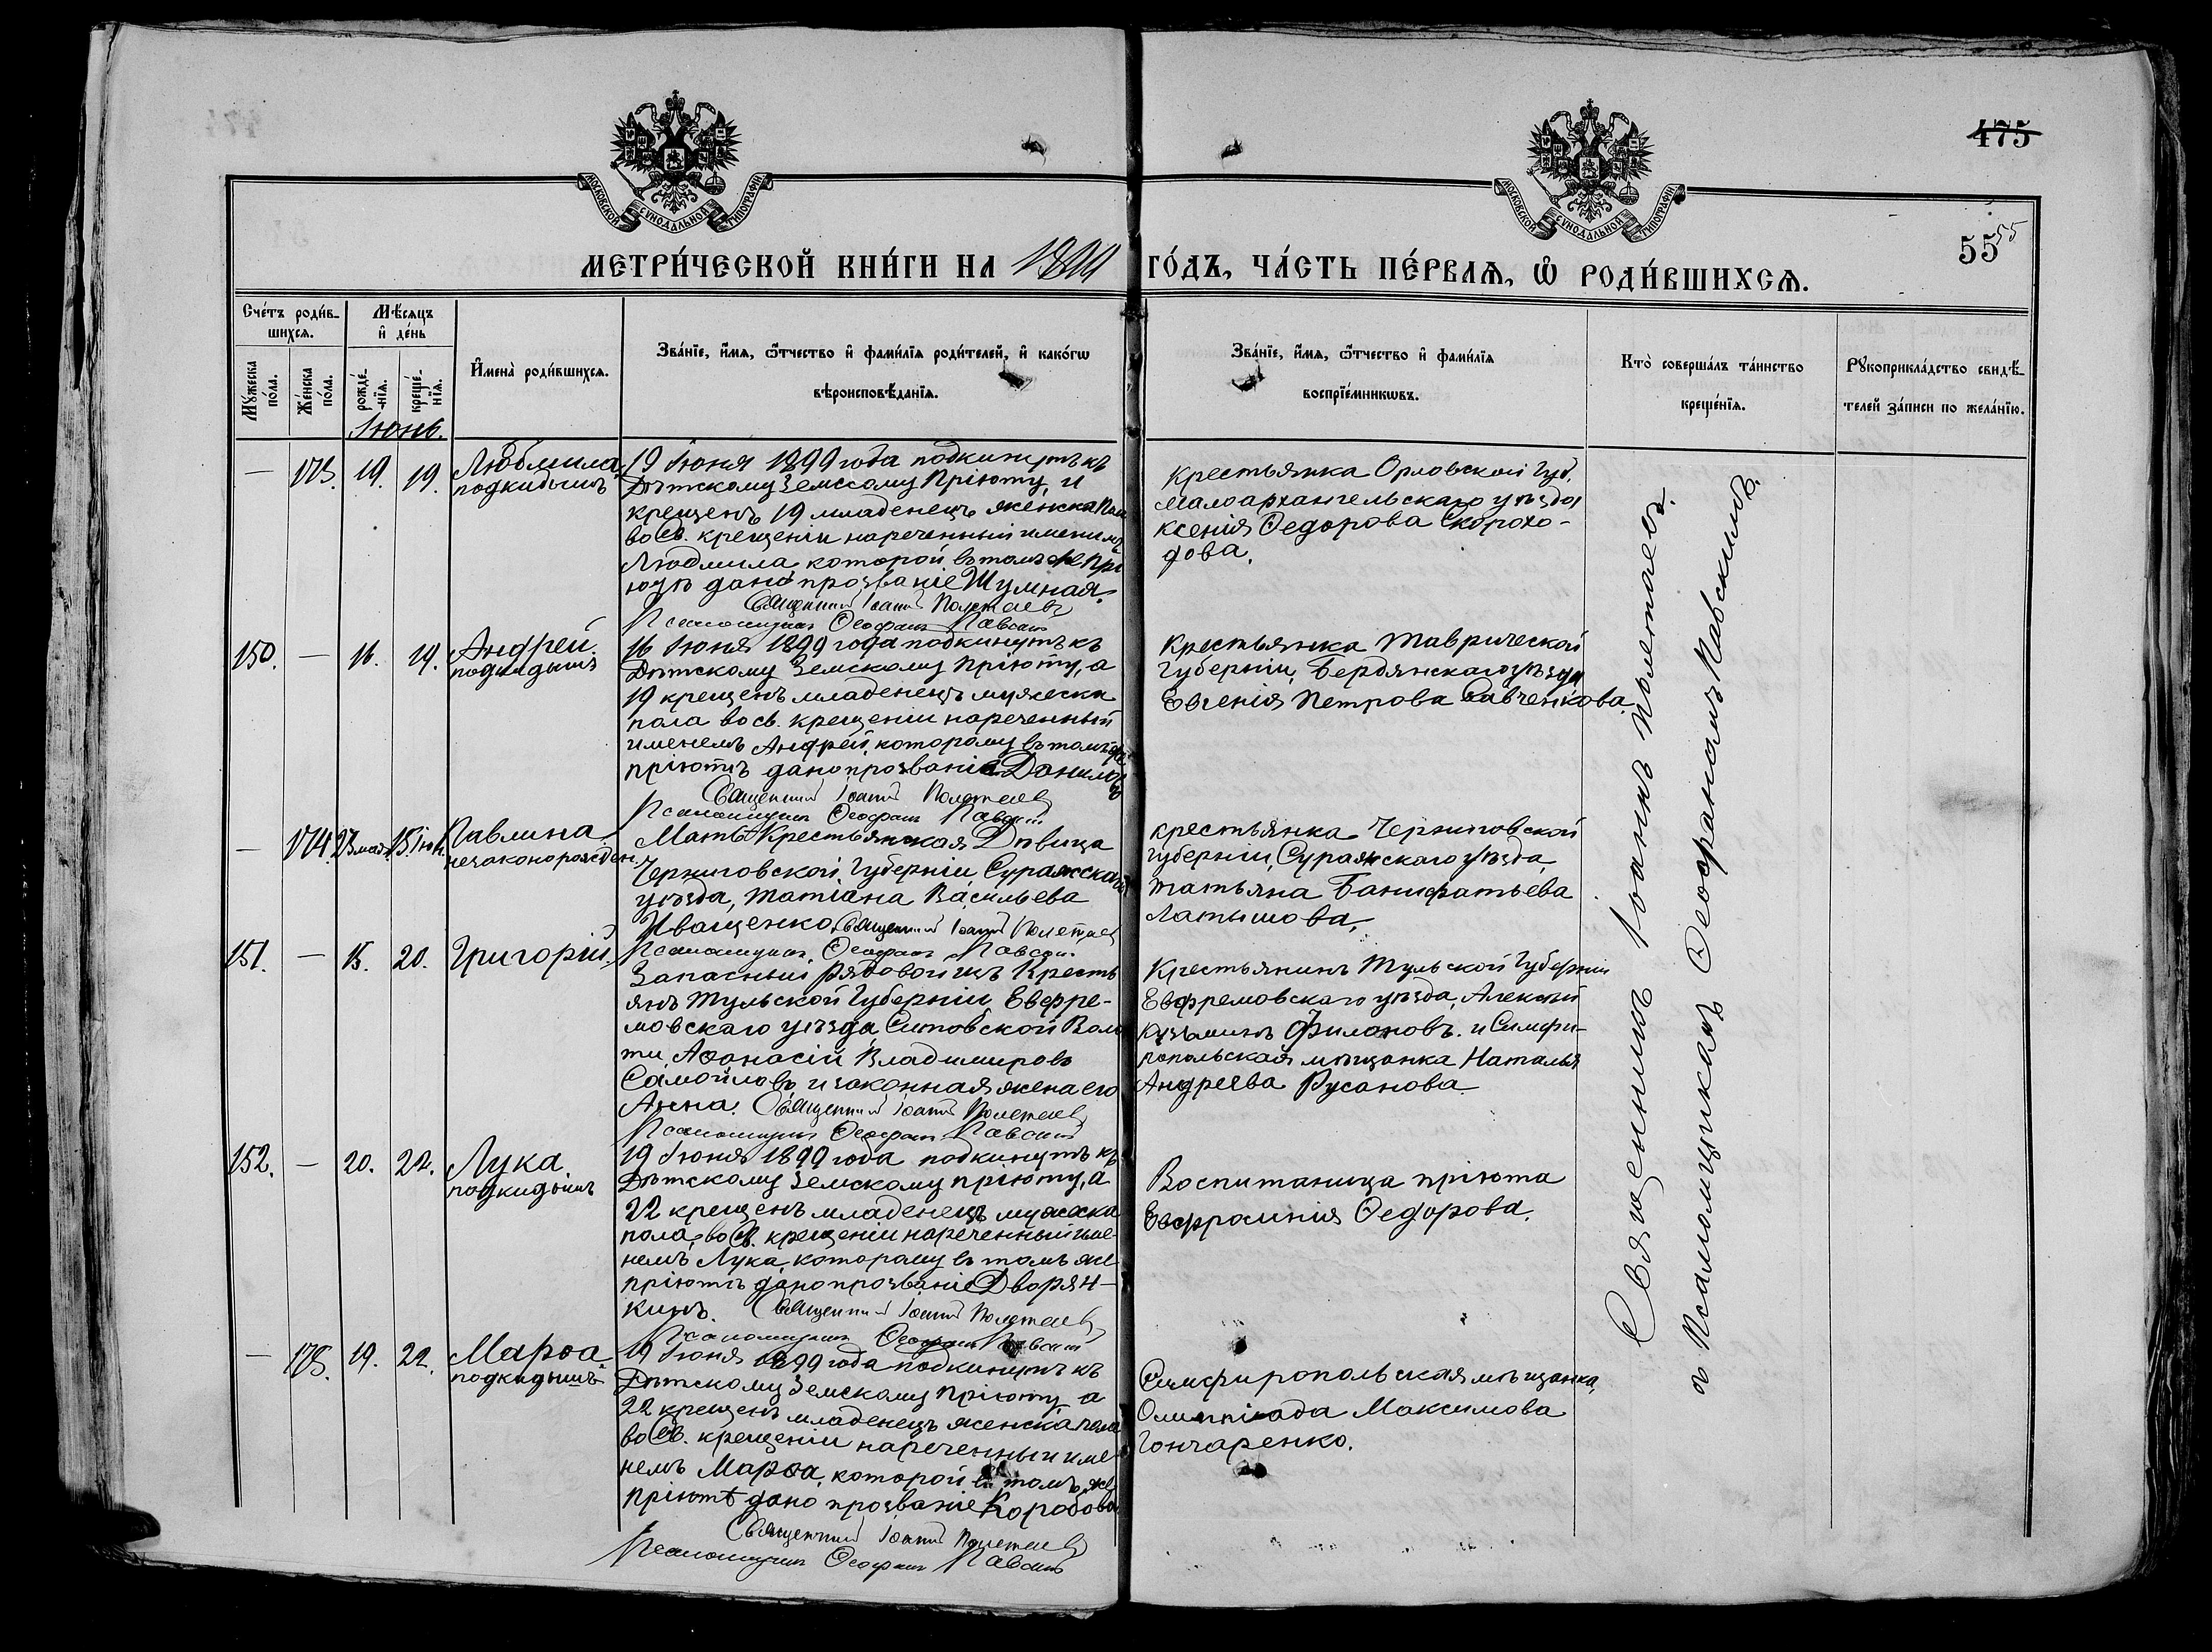 475
МОСКОВСКОЙ СѴНОДАЛЬНОЙ ТИПОГРАФІИ
МОСКОВСКОЙ СѴНОДАЛЬНОЙ ТИПОГРАФІИ
55 55
МЕТРИ́ЧЕСКОЙ КНИ́ГИ НА 1899 ГО́ДЪ, ЧА́СТЬ ПЕ́РВАѦ, Ѽ РОДИ́ВШИХСѦ.
Сче́тъ роди́в-
шихсѧ.
Мꙋ́жеска по́ла.
Же́нска по́ла.
Мѣ́сяцъ и҆ де́нь
рожде́-нїѧ.
креще́-нїѧ.
И҆мена̀ роди́вшихсѧ.
Зва́нїе, и҆́мѧ, ѻ҆́тчество и҆ фами́лїѧ роди́телей, и҆ како́гѡ
вѣроисповѣ́данїѧ.
Зва́нїе, и҆́мѧ, ѻ҆́тчество и҆ фами́лїѧ
воспрїе́мникѡвъ.
Кто̀ соверша́лъ та́инство
креще́нїѧ.
Рꙋкоприкла́дство свидѣ́-
телей за́писи по жела́нїю.
Іюнь.
— 173. 19. 19. Людмила
подкидышъ
19 Іюня 1899 года подкинутъ къ
Дѣтскому Земскому Пріюту, и
крещенъ 19 младенецъ женска пола
во Св. крещеніи нареченный именемъ
Людмила, которой въ томъ же прі
ютѣ дано прозваніе Шумная.
Священникъ Іоаннъ Полетаевъ
Псаломщикъ Ѳеофанъ Павскій
Крестьянка Орловской Губ.
Малоархангельскаго уѣзда
Ксенія Ѳедорова Скорохо-
дова.
150. — 16. 19. Андрей.
подкидышъ
16 Іюня 1899 года подкинутъ къ
Дѣтскому Земскому Пріюту, а
19 крещенъ младенецъ мужеска
пола во св. крещеніи нареченный
именемъ Андрей, которому въ томъ же
пріютѣ дано прозваніе Даниловъ
Священникъ Іоаннъ Полетаевъ
Псаломщикъ Ѳеофанъ Павскій
Крестьянка Таврической
Губерніи, Бердянскаго уѣзда
Евгенія Петрова Савченкова.
— 174. 23 мая. 15 Іюн. Павлина
незаконорожден.
Мать Крестьянская Дѣвица
Черниговской Губерніи Суражскаго
уѣзда, Татіана Васильева
Иващенко. Священникъ Іоаннъ Полетаевъ
Псаломщикъ Ѳеофанъ Павскій
крестьянка Черниговской
Губерніи, Суражскаго уѣзда,
Татьяна Банифатьева
Латышова.
151. — 15. 20. Григорій.
Запасный рядовой изъ Кресть
янъ Тульской Губерніи, Евфре-
мовскаго уѣзда, Ситовской Волос
ти, Аѳанасій Владимировъ
Самойловъ и законная жена его
Анна. Священникъ Іоаннъ Полетаевъ
Псаломщикъ Ѳеофанъ Павскій
Крестьянинъ Тульской Губерніи
Евфремовскаго уѣзда, Алексѣй
Кузьминъ Филоновъ. и Симфи-
ропольская мѣщанка Наталья
Андреева Русанова.
152. — 20. 22. Лука.
подкидышъ
19 Іюня 1899 года подкинутъ къ
Дѣтскому Земскому пріюту, а
22 крещенъ младенецъ мужеска
пола, во Св. крещеніи нареченный име-
немъ Лука, которому въ томъ же
пріютѣ дано прозваніе Дворян-
кинъ. Священникъ Іоаннъ Полетаевъ
Псаломщикъ Ѳеофанъ Павскій
Воспитаница пріюта
Евфросинія Ѳедорова.
— 175. 19. 22. Марѳа.
подкидышъ
19 Іюня 1899 года подкинутъ къ
Дѣтскому Земскому Пріюту, а
22 крещенъ младенецъ женска пола
во Св. крещеніи нареченный име-
немъ Марѳа, которой въ томъ же
Пріютѣ дано прозваніе Коробова
Священникъ Іоаннъ Полетаевъ
Псаломщикъ Ѳеофанъ Павскій
Симфиропольская мѣщанка,
Олимпіада Максимова
Гончаренко.
Священникъ Іоаннъ Полетаевъ
съ Псаломщикомъ Ѳеофаномъ Павскимъ.